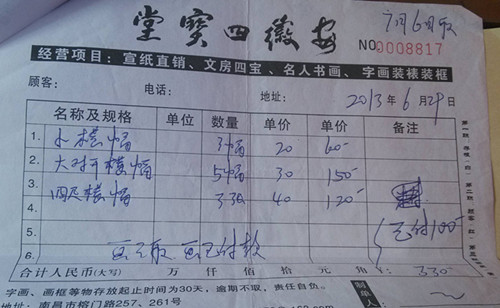 安徽四寶堂
7月6日取
NO 0008817
经营项目：宣纸直销、文房四宝、名人书画、字画装裱装框
顾客： 电话： 地址： 2013年6月29日
名称及规格 单位 数量 单价 单价 备注
1. 小横幅 3幅 20 60-
2. 大对开横幅 5幅 30 150-
3. 四尺横幅 3幅 40 120-
4.
5. 已付100-
6. 画已取 画已付款
合计人民币(大写) 万 仟 佰 拾 元 角 ￥: 330
字画、画框等物存放起止时间为30天，逾期不取，责任自负。
地址：南昌市榕门路257、261号
制单人